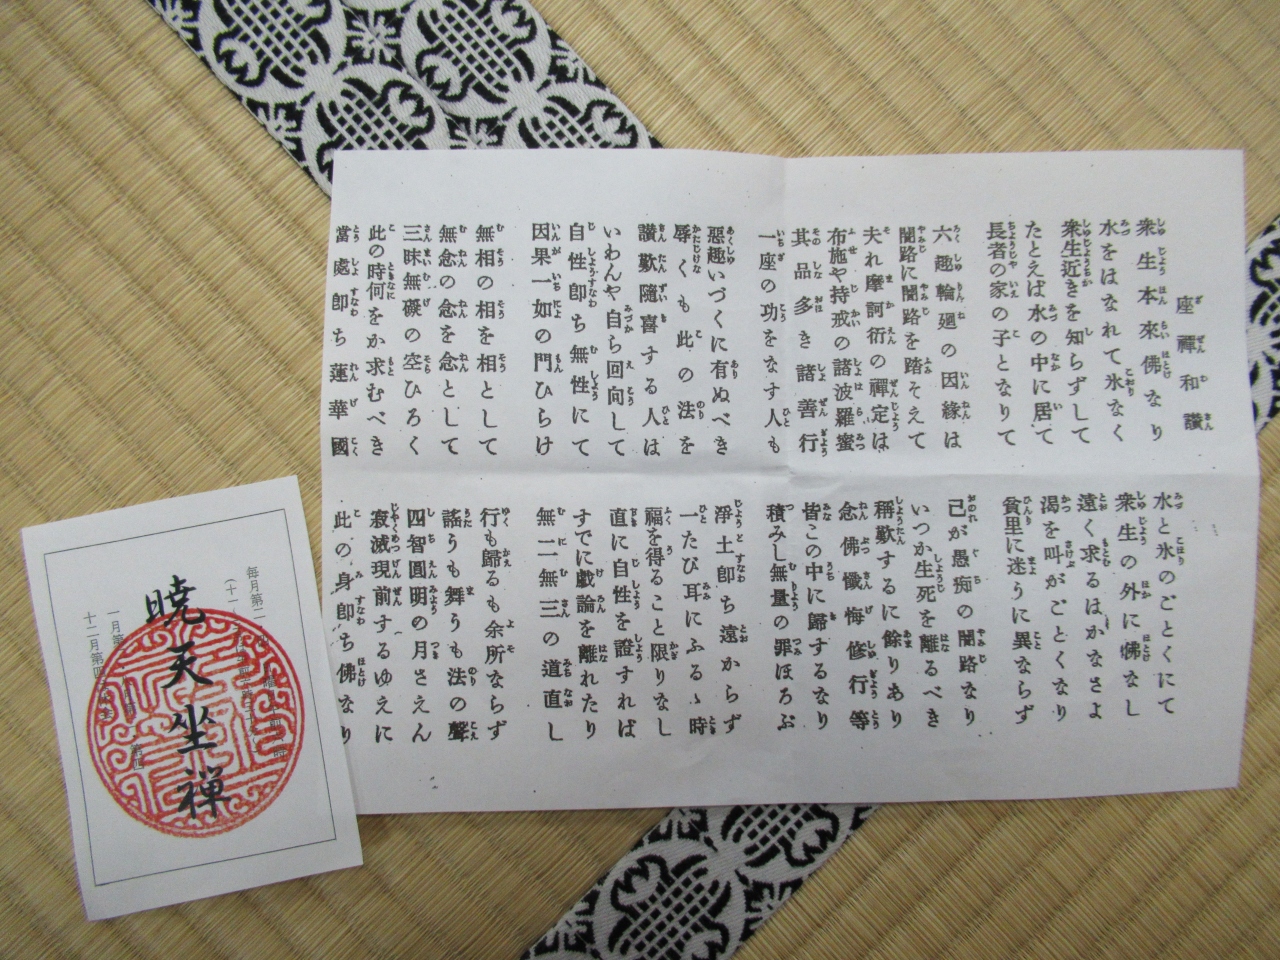 座禪和讃
衆生本來佛なり
水と氷のごとくにて
水をはなれて氷なく
衆生の外に佛なし
衆生近きを知らずして
遠く求るはかなさよ
たとえば水の中に居て
渇を叫がごとくなり
長者の家の子となりて
貧里に迷うに異ならず
六趣輪廻の因緣は
己が愚痴の闇路なり
闇路に闇路を踏そえて
いつか生死を離るべき
夫れ摩訶衍の禪定は
稱歎するに餘りあり
布施や持戒の諸波羅蜜
念佛懺悔修行等
其品多き諸善行
皆この中に歸するなり
一座の功をなす人も
積みし無量の罪ほろぶ
惡趣いづくに有ぬべき
淨土卽ち遠からず
辱くも此の法を
一たび耳にふるゝ時
讚歎隨喜する人は
福を得ること限りなし
いわんや自ら回向して
直に自性を證すれば
自性卽ち無性にて
すでに戲論を離れたり
因果一如の門ひらけ
無二無三の道直し
無相の相を相として
行も歸るも余所ならず
無念の念を念として
謠うも舞うも法の聲
三昧無礙の空ひろく
四智圓明の月さえん
此の時何をか求むべき
寂滅現前するゆえに
當處卽ち蓮華國
此の身卽ち佛なり
暁天坐禅
毎月第二
一月第
十二月第四
第四